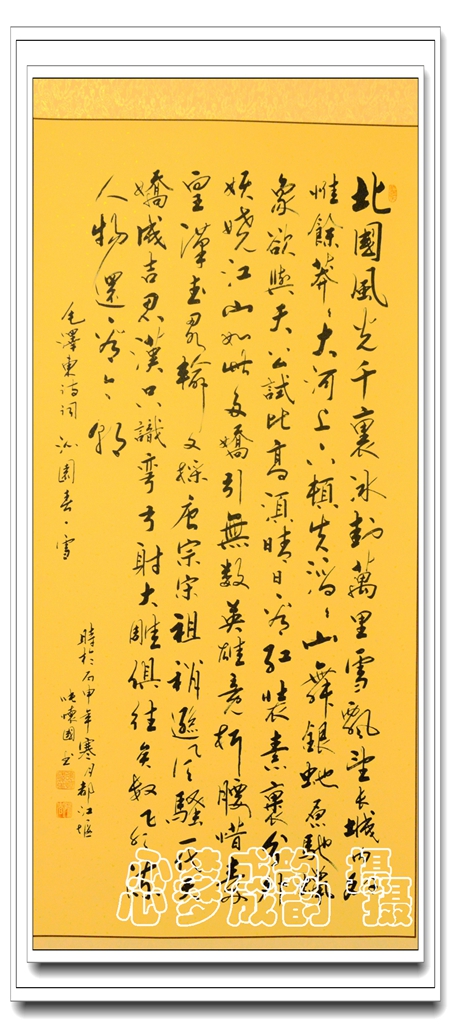 北國風光千裏冰封萬里雪飄望長城內外
惟餘莽々大河上下頓失滔々山舞銀蛇原馳蠟
象欲與天公試比高須晴日看紅裝素裹分外
妖嬈江山如此多嬌引無数英雄競折腰惜秦
皇漢武畧輸文採唐宗宋祖稍遜風騷一代天
嬌成吉思漢只識彎弓射大雕俱往矣数風流
人物還看今朝
毛澤東詩詞 沁園春·雪
時於丙申年寒月都江堰
懷國書
心梦成韵 摄
摄